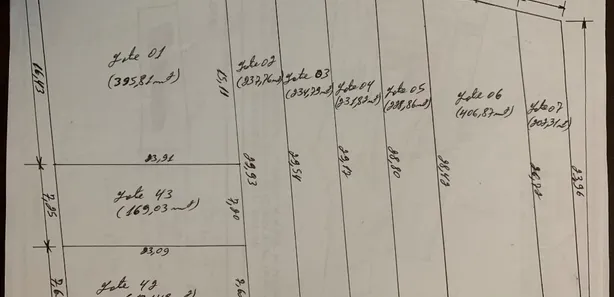 Lote 01
(395,81 m²)
Lote 02
(237,76 m²)
Lote 03
(234,79 m²)
Lote 04
(231,82 m²)
Lote 05
(228,86 m²)
Lote 06
(406,87 m²)
Lote 07
(202,31 m²)
15,11
23,91
29,93
29,54
29,17
28,80
28,43
23,96
Lote 43
(169,03 m²)
7,25
7,20
23,09
Lote 42